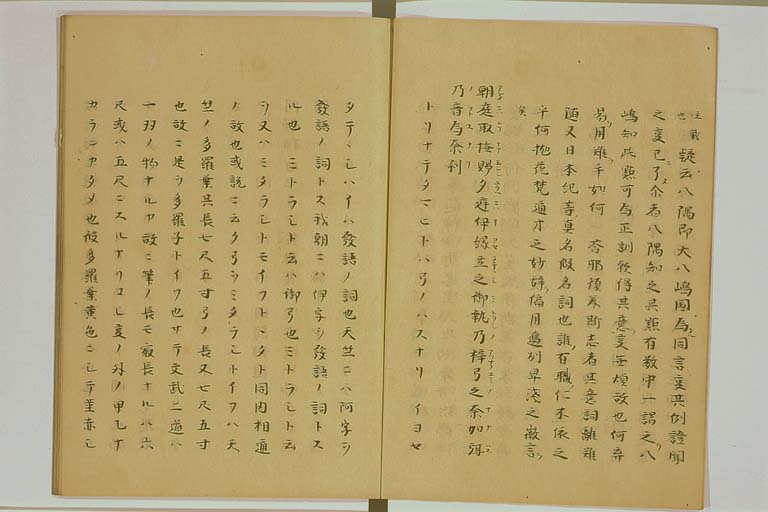 注義也 疑云八隅即大八嶋国与同言更其例證聞
之変已了奈者八隅知之具點有数中一謂之八
嶋知此点可与正訓彼得其意更無煩故也何弃
易用難乎如何 答耶須米斯志者其意詞雖難
随又日本紀等真名假名詞也誰有職仁不依之
乎何抛花梵通才之妙辞偏用邊列早淺之徴言
矣
朝庭取撫賜夕庭伊縁立之御執乃梓弓之奈加弭
乃音為奈利
トリナテタマヒトハ弓ノハスナリイヨセ
タテヽシハイハ發語ノ詞也天竺ニハ阿字ヲ
發語ノ詞トス我朝ニハ伊字ヲ發語ノ詞トス
ル也ミトラシト云ハ御弓也ミトラシト云
ヲ又ハミタラシトモイフトヽタト同内相通
ノ故也或説ニ云ク弓ヲミタラシトイフハ天
竺ノ多羅葉其長七尺五寸弓ノ長又七尺五寸
也故ニ是ヲ多羅子トイフ也サテ文武二道ハ
一双ノ物ナルカ故ニ筆ノ長モ最長ナルハ六
尺或ハ五尺ニスルナリコレ変ノ外ノ甲乙ナ
カランカタメ也彼多羅葉黄色ニシテ茎赤シ